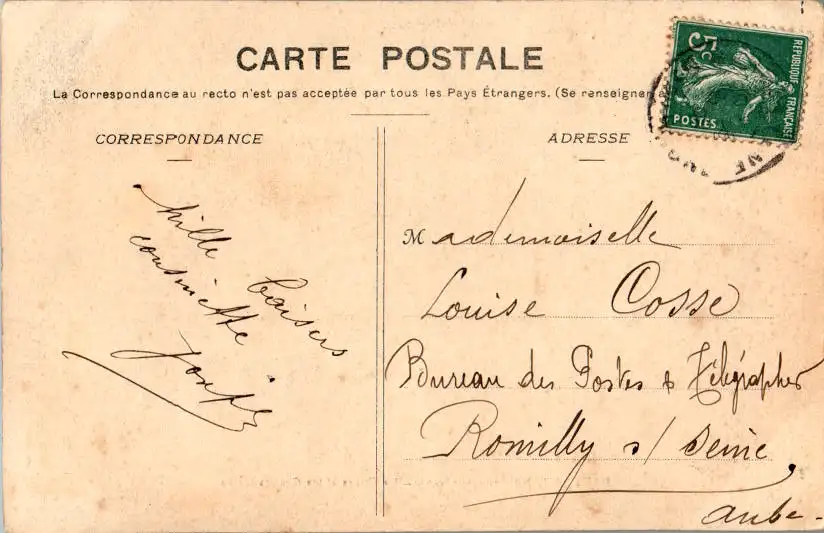 CARTE POSTALE
La Correspondance au recto n'est pas acceptée par tous les Pays Étrangers. (Se renseigner
CORRESPONDANCE
ADRESSE
RÉPUBLIQUE FRANÇAISE
5c
POSTES
Mille baisers
cousinette
Mademoiselle
Louise Cosse
Bureau des Postes & Télégraphes
Romilly s/ Seine
Aube